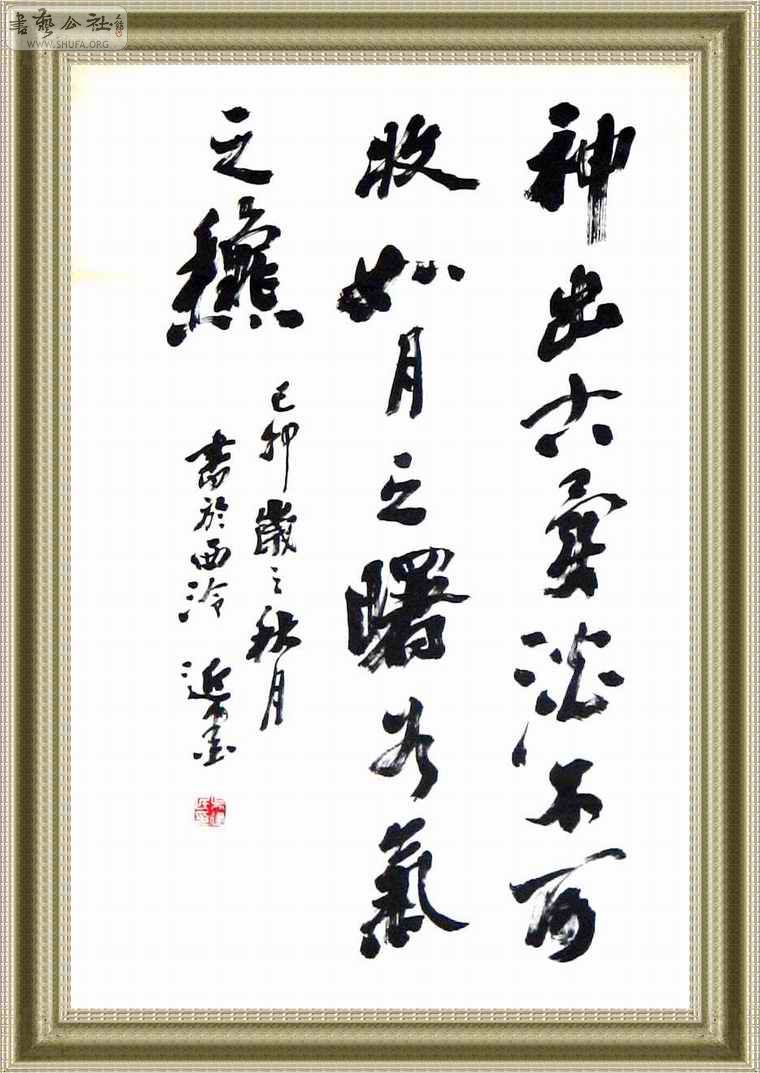 書藝公社
WWW.SHUFA.ORG
神出古異淡不可
收如月之曙若氣
之龝
己卯歲之秋月
書於西泠 近墨